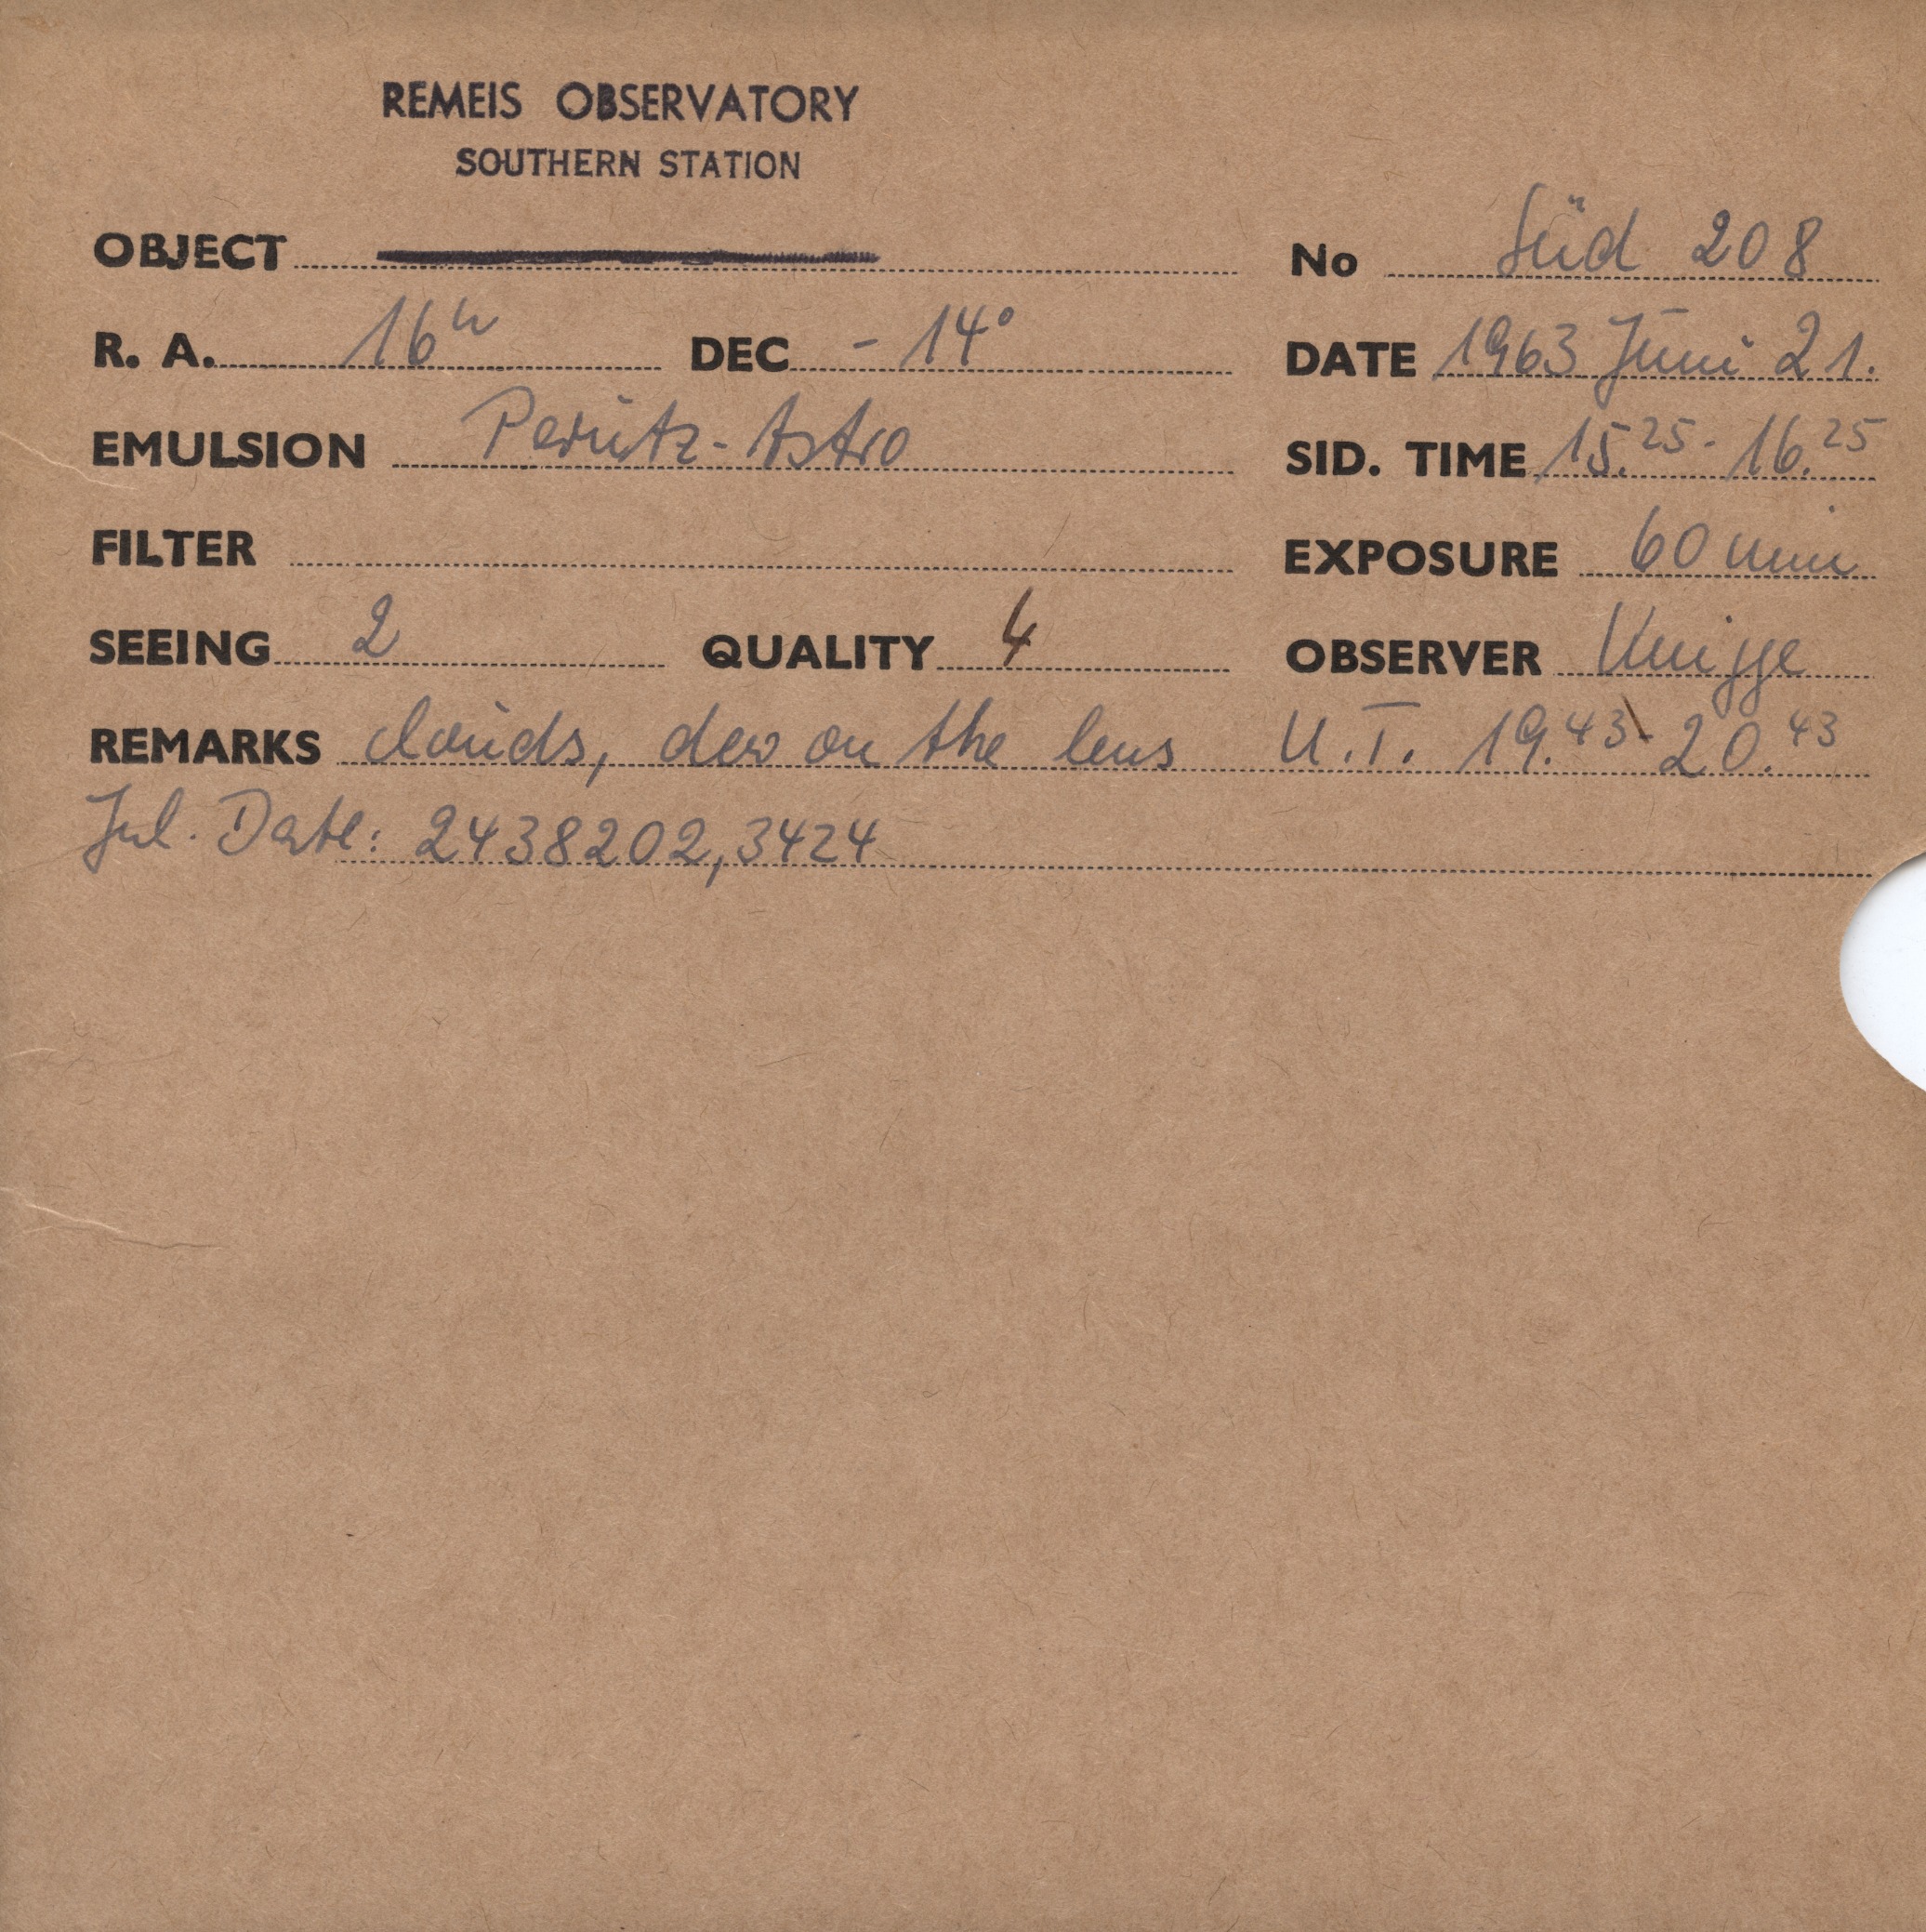 REMEIS OBSERVATORY
SOUTHERN STATION
OBJECT No Süd 208
R. A. 16h DEC - 14° DATE 1963 Juni 21.
EMULSION Perutz-Astro SID. TIME 15.25 - 16.25
FILTER EXPOSURE 60 min
SEEING 2 QUALITY 4 OBSERVER Knigge
REMARKS clouds, dew on the lens U.T. 19.43 - 20.43
Jul. Date: 2438202,3424